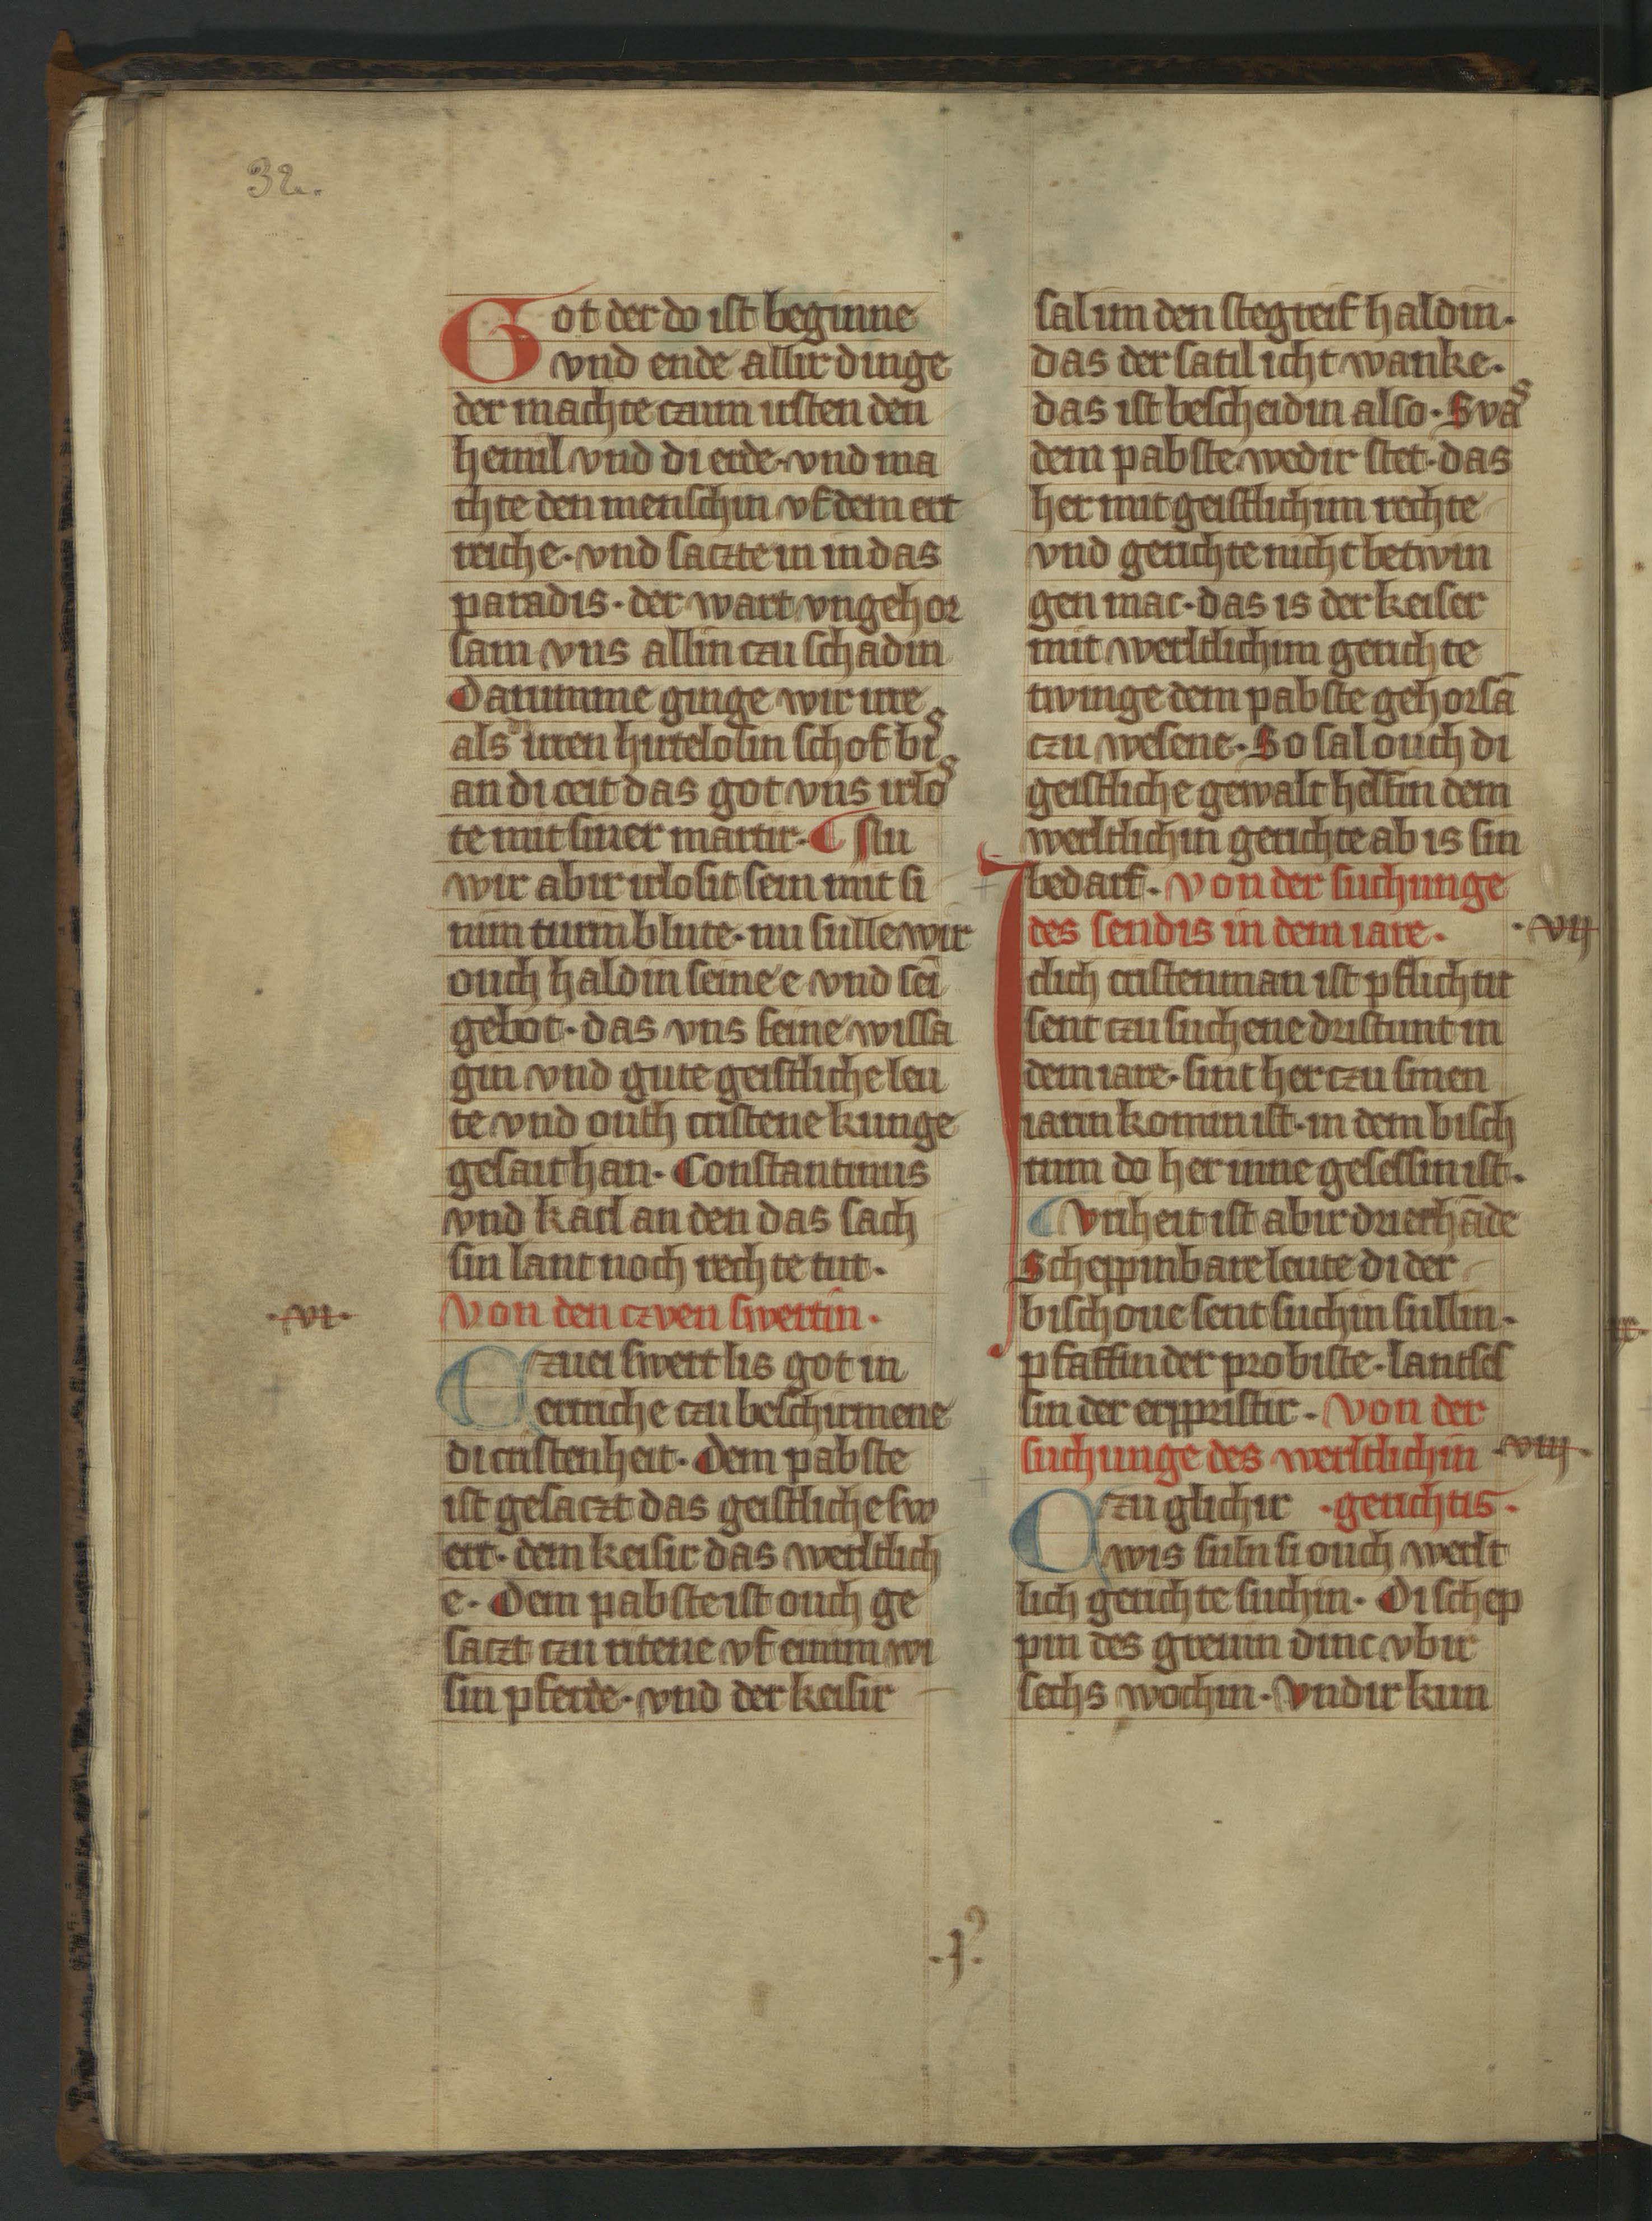 32.
Got der do ist beginne
vnd ende allir dinge
der machte czum irsten den
hemil vnd di erde · vnd ma
chte den menschin vf dem ert
reiche · vnd saczte in in das
paradis · der wart vngehor
sam vns allin czu schadin
Darumme ginge wir irre
als irren hirtelosin schof bis
an di ceit das got vns irlos
te mit siner martir · ¶ Nu
wir abir irlosit sein mit si
nim turin blute · nu sulle wir
ouch haldin seine e vnd sei
gebot · das vns seine wissa
gin vnd gute geistliche leu
te vnd outh cristene kunge
gesait han · Constantinus
vnd karl an den das sach
sin lant noch rechte tut ·
·VI· Von den czven swertin ·
Czuei swert lis got in
ertriche czu beschirmene
di cristenheit · Dem pabste
ist gesaczt das geistliche sw
ert · dem keisir das werltlich
e · Dem pabste ist ouch ge
saczt czu ritene vf einim wi
sin pferde · vnd der keisir
sal im den stegreif haldin ·
das der satil icht wanke ·
das ist bescheidin also · Svas
dem pabste wedir stet · das
her mit geistlichim rechte
vnd gerichte nicht betwin
gen mac · das is der keiser
mit werltlichim gerichte
twinge dem pabste gehorsā
czu wesene · So sal ouch di
geistliche gewalt helfin dem
werltlichin gerichte ab is sin
bedarf · Von der suchunge
des sendis in dem iare · ·VII
Iclich cristenman ist pflichtit
sent czu suchene dristunt in
dem iare · sint her czu sinen
iarin komin ist · in dem bisch
tum do her inne gesessin ist ·
¶ Vriheit ist abir drierhāde
Scheppinbare leute di der
bischoue sent suchin sullin ·
pfaffin der probiste · lantses
sin der erppristir · Von der
suchunge des werltlichin ·VIII·
Czu glichir · gerichtis ·
wis suln si ouch werlt
lich gerichte suchin · Di schep
pin des greuin dinc vbir
sechs wochin · Vndir kun